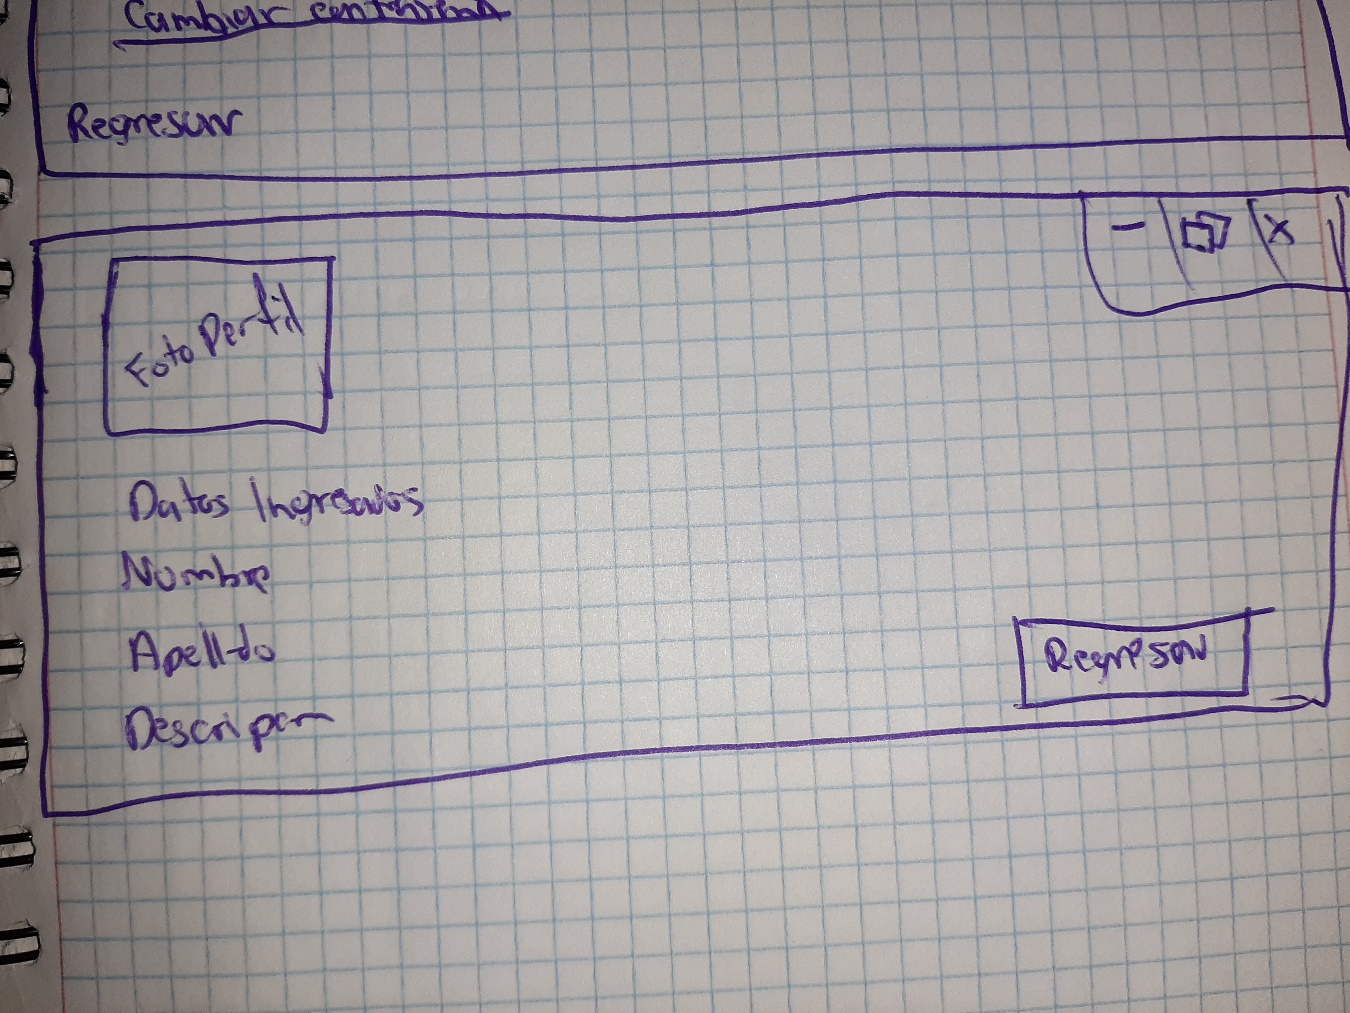 Cambiar contraseña
Regresar
- X
Foto Perfil
Datos Ingresados
Nombre
Apellido
Descripcion
Regresar